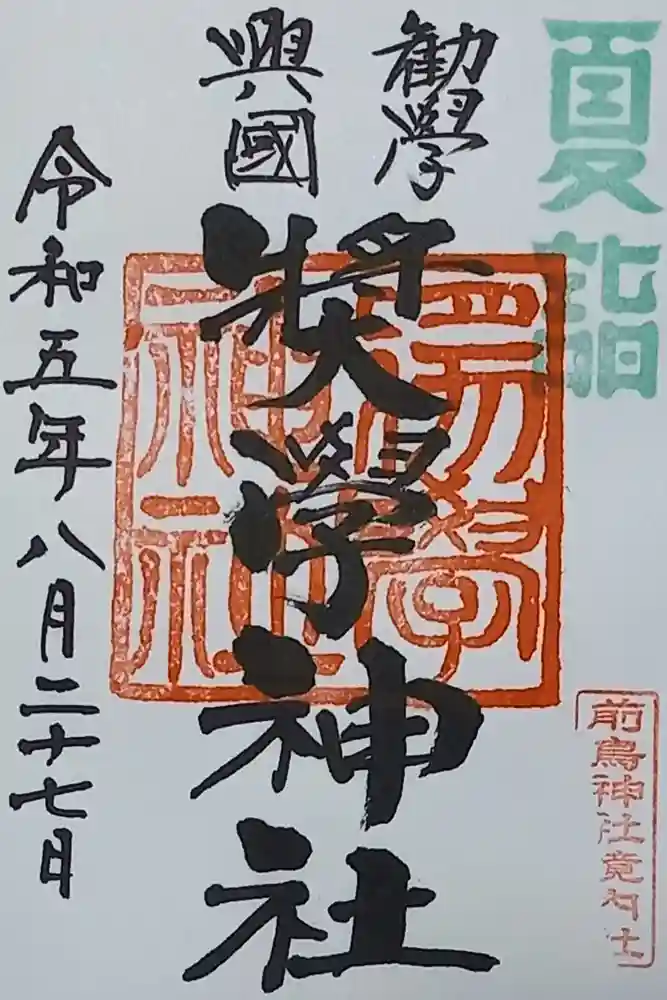 夏詣
勸學
興國
奬學神社
前鳥神社境内社
令和五年八月二十七日